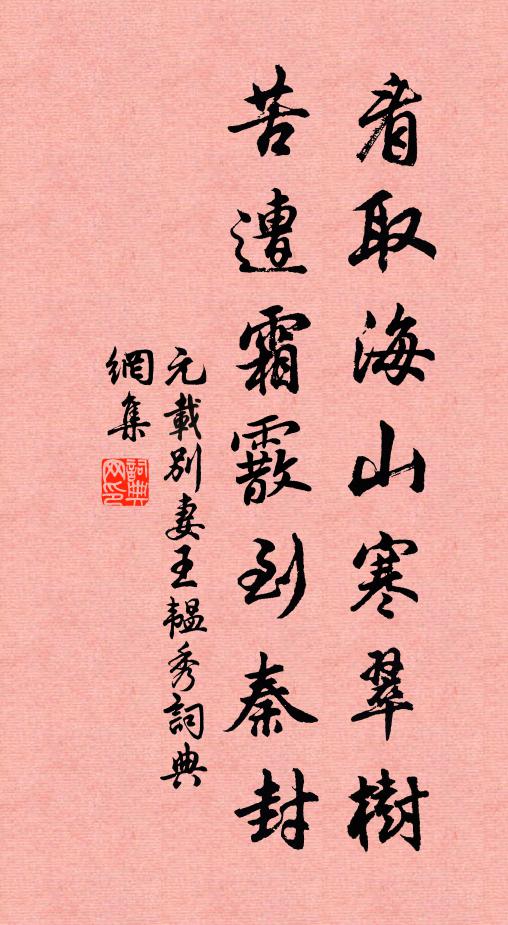 看取海山寒翠樹
苦遭霜霰到秦封
元載別妻王韞秀詞典
網集
詞典網印